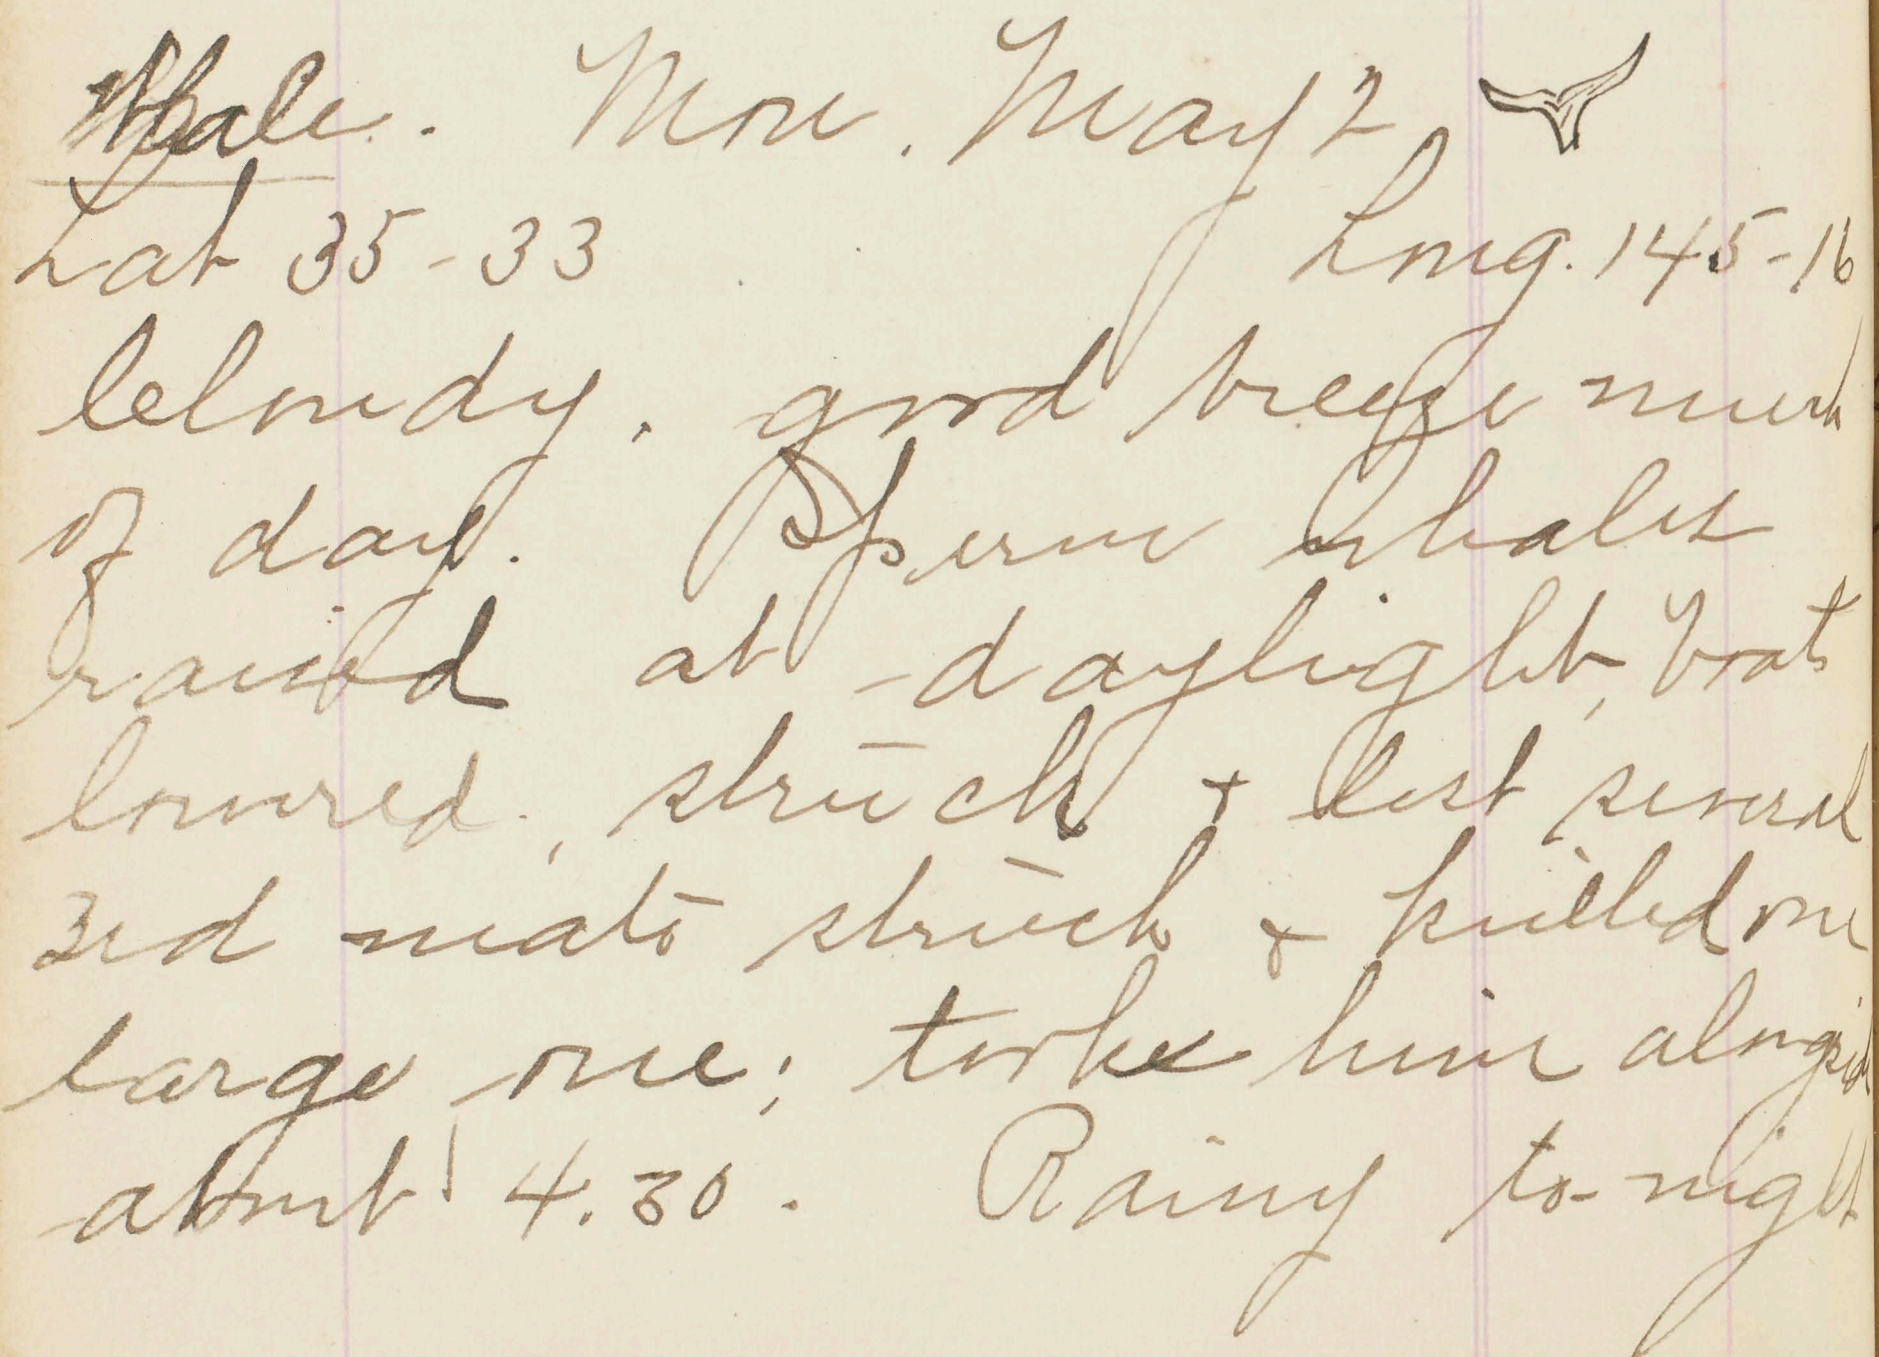 Whale. Mon. May 2
Lat 35-33 Long. 145-16
Cloudy. good breeze much
of day. Sperm whales
raised at daylight, boats
lowered, struck + lost several
3rd mate struck + killed one
large one; tooke him alongside
about 4.30. Rainy to-night